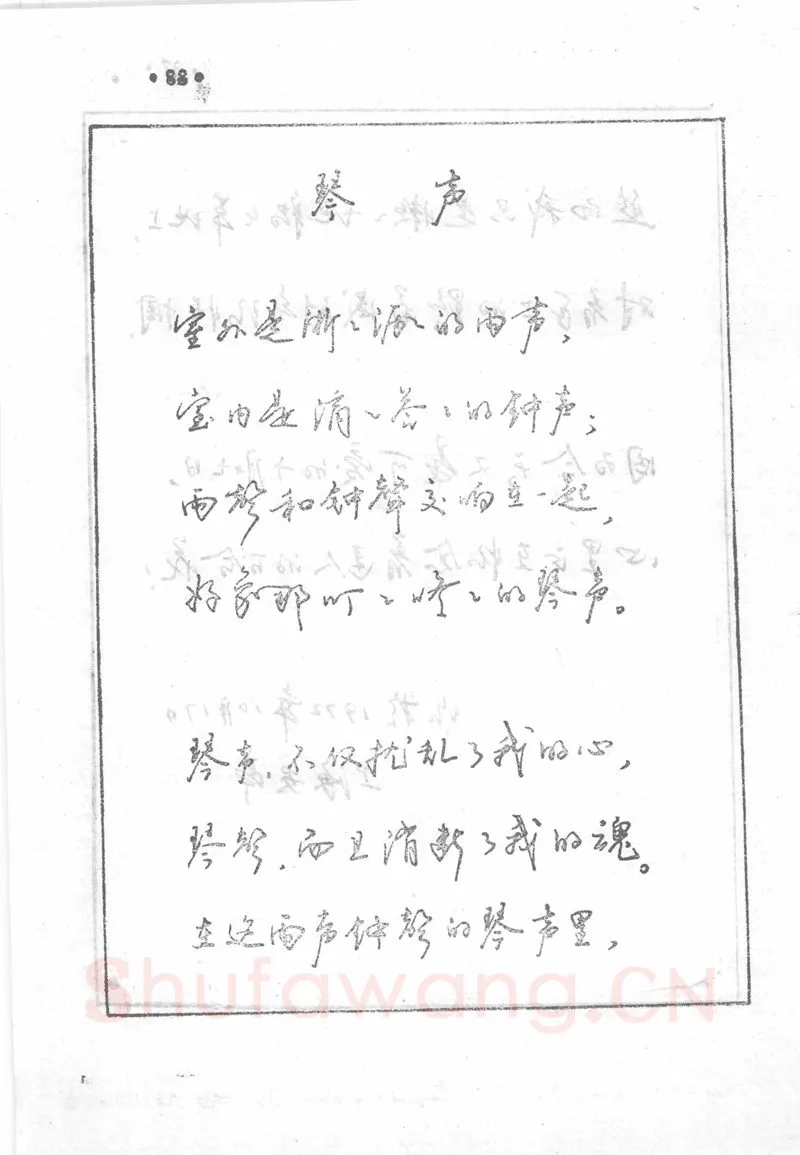 •88•
琴声
室外是淅〻沥〻的雨声,
室内是滴〻答〻的钟声;
雨聲和钟聲交响在一起,
好象那叮〻咚〻的琴声。
琴声,不仅扰乱了我的心,
琴聲,而且消断了我的魂。
在这雨声钟聲的琴声里,
Shufawang.CN